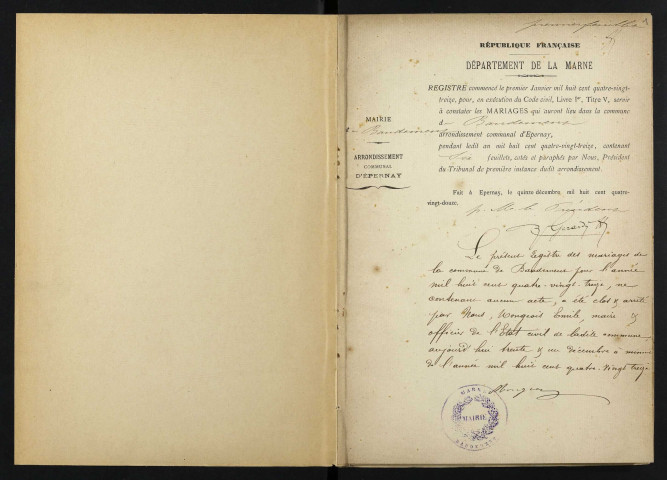 premier feuillet
RÉPUBLIQUE FRANÇAISE
DÉPARTEMENT DE LA MARNE
MAIRIE
de Baudement
ARRONDISSEMENT
COMMUNAL
D'ÉPERNAY
REGISTRE commencé le premier Janvier mil huit cent quatre-vingt-
treize, pour, en exécution du Code civil, Livre Ier, Titre V, servir
à constater les MARIAGES qui auront lieu dans la commune
d Baudement
arrondissement communal d'Epernay,
pendant ledit an mil huit cent quatre-vingt-treize, contenant
feuillets, cotés et paraphés par Nous, Président
du Tribunal de première instance dudit arrondissement.
Fait à Epernay, le quinze décembre, mil huit cent quatre-
vingt-douze.
p. Mr le Président
Le présent Registre des mariages de
la commune de Baudement pour l'année
mil huit cent quatre-vingt-treize, ne
contenant aucun acte, a été clos & arrêté
par Nous, Mongeois Emile, maire &
officier de l'Etat civil de ladite commune,
aujourd'hui trente & un décembre à minuit
de l'année mil huit cent quatre-vingt treize
MARNE
MAIRIE
BAUDEMENT